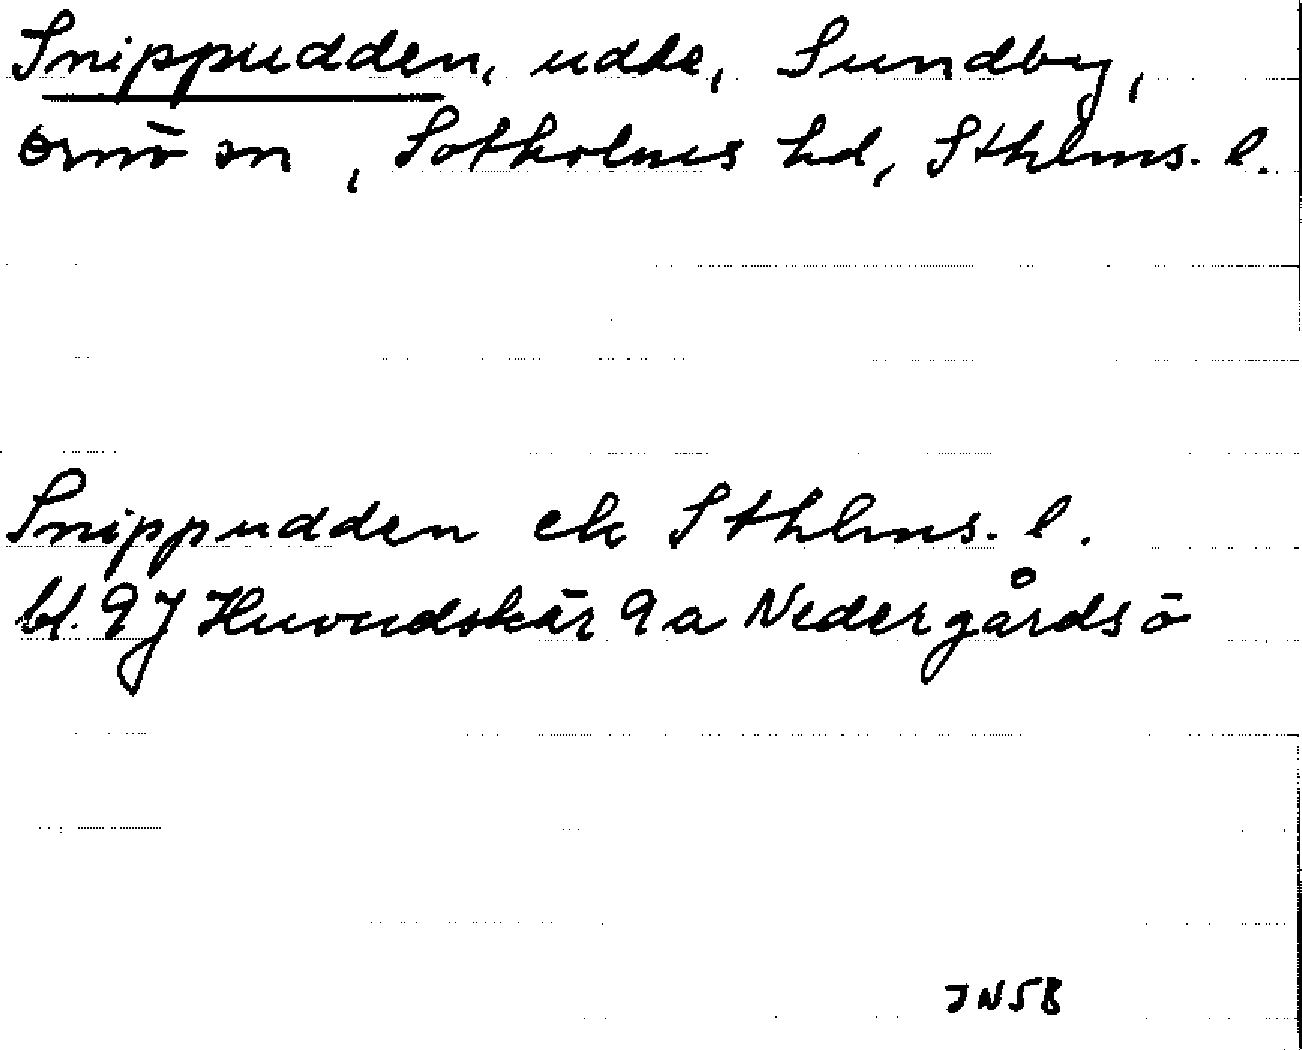 Snippudden, udde, Sundby,
Ornö sn, Sotholms hd, Sthlms. l.
Snippudden ek Sthlms. l.
bl. 9J Huvudskär 9a Nedergårdsö
JN58